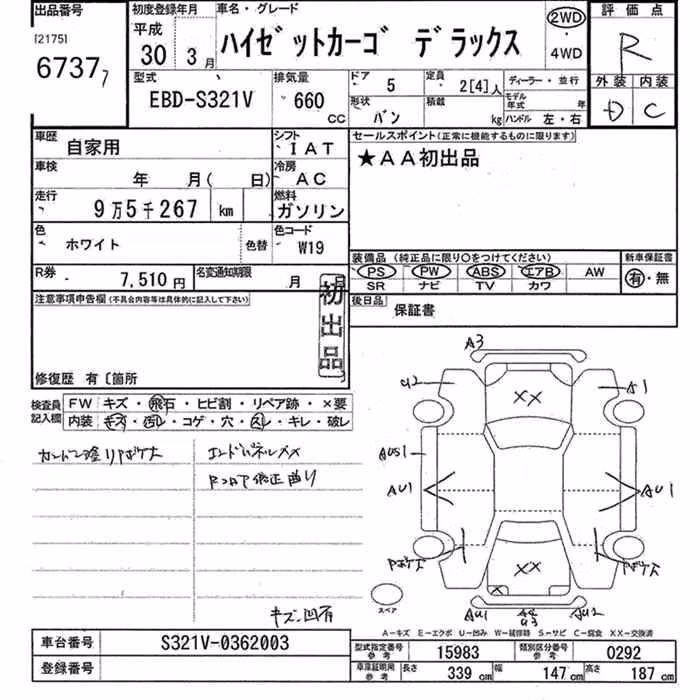 出品番号
[2175]
6737 7
初度登録年月
平成
30年 3月
車名・グレード
ハイゼットカーゴ デラックス
2WD
・
4WD
評価点
R
外装 内装
D C
型式
EBD-S321V
排気量
660 CC
ドア 5
定員 2[4]人
ディーラー・並行
形状 バン
積載 kg
モデル年式 年
ハンドル 左・右
車歴 自家用
シフト IAT
車検 年 月( 日)
冷房 AC
走行 9万5千267 km
燃料 ガソリン
色 ホワイト
色替
色コード W19
R券 7,510円
名変通知期限 月 日
セールスポイント(正常に機能するものに限ります)
★AA初出品
装備品 (純正品に限り○をつけてください)
新車保証書
PS PW ABS エアB AW
有・無
SR ナビ TV カワ
後日品 保証書
注意事項申告欄(不具合内容等は具体的に記入して下さい)
初出品
修復歴 有〔箇所 〕
検査員記入欄
FW キズ・飛石・ヒビ割・リペア跡・×要
内装 キズ・汚レ・コゲ・穴・スレ・キレ・破レ
エンドパネルXX
Rフロア修正曲り
キズ凹有
A3
A2
A1
XX
AUS1
AU1
AU1
XX
スペア
AU1
AU2
A-キズ E-エクボ U-凹み W-補修跡 S-サビ C-腐食 XX-交換済
車台番号 S321V-0362003
登録番号
型式指定番号 参考 15983
類別区分番号 参考 0292
車庫証明用 参考 長さ 339 cm 幅 147 cm 高さ 187 cm